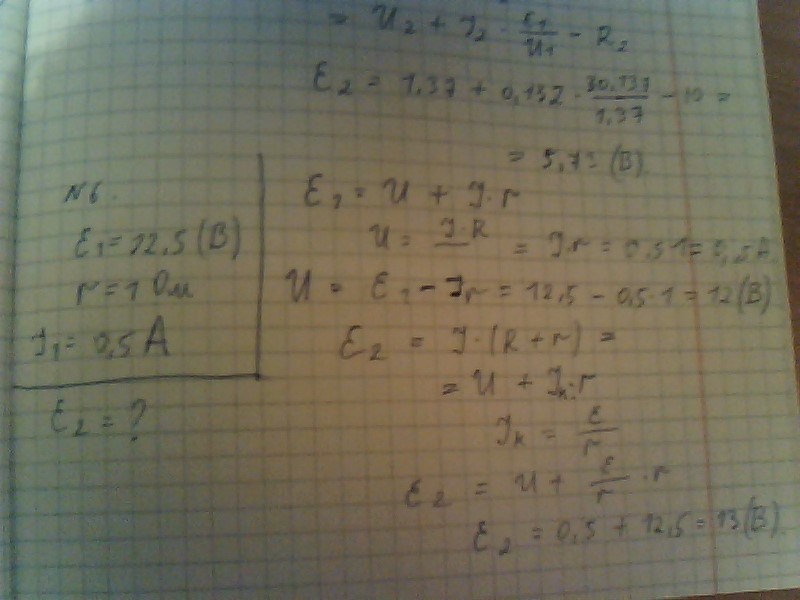 = U₂ + I₂ · ε₂/U₁ - R₂
ε₂ = 1,37 + 0,132 · 30,131/1,37 - 10 =
= 5,73 (В)
N6.
ε₁ = 12,5 (В)
r = 1 Ом
I₁ = 0,5 А
ε₂ = ?
ε₁ = U + I·r
U = I·R = I·r = 0,5·1 = 0,5 А
U = ε₁ - Ir = 12,5 - 0,5·1 = 12 (В)
ε₂ = I·(R + r) =
= U + Iк·r
Iк = ε/r
ε₂ = U + ε/r · r
ε₂ = 0,5 + 12,5 = 13 (В)